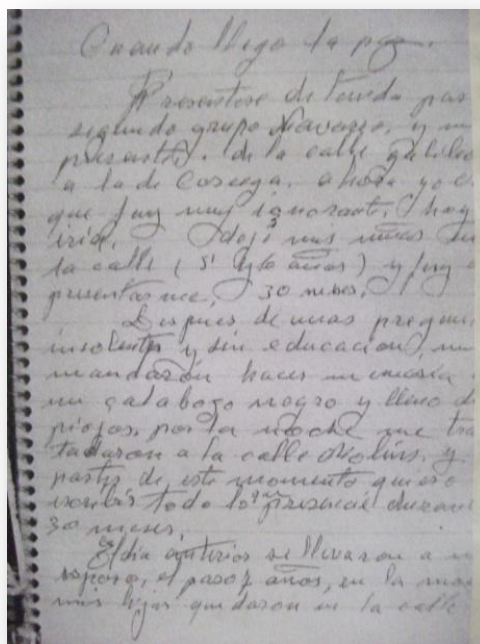 Cuando llego la paz.
Presentose de tenida par
segundo grupo Navarro, y m
presenté. de la calle galileo
a la de Corcega, ahora yo
que fuy muy ignorante, hoy
iria. dejé 3 mis niñas en
la calle ( 5 y 6 años ) y fuy a
presentarme, 30 meses.
Despues, de unas pregun
insolentes y sin educacion, me
mandaron hacer memoria
un calabozo negro y lleno de
piojos, por la noche me tras
ladaron a la calle y
partir de este momento quiero
escribir todo lo que presencié durant
30 meses,
El dia anterior se llevaron a m
esposo, el paso 7 años, en la
mis hijas quedaron en la calle